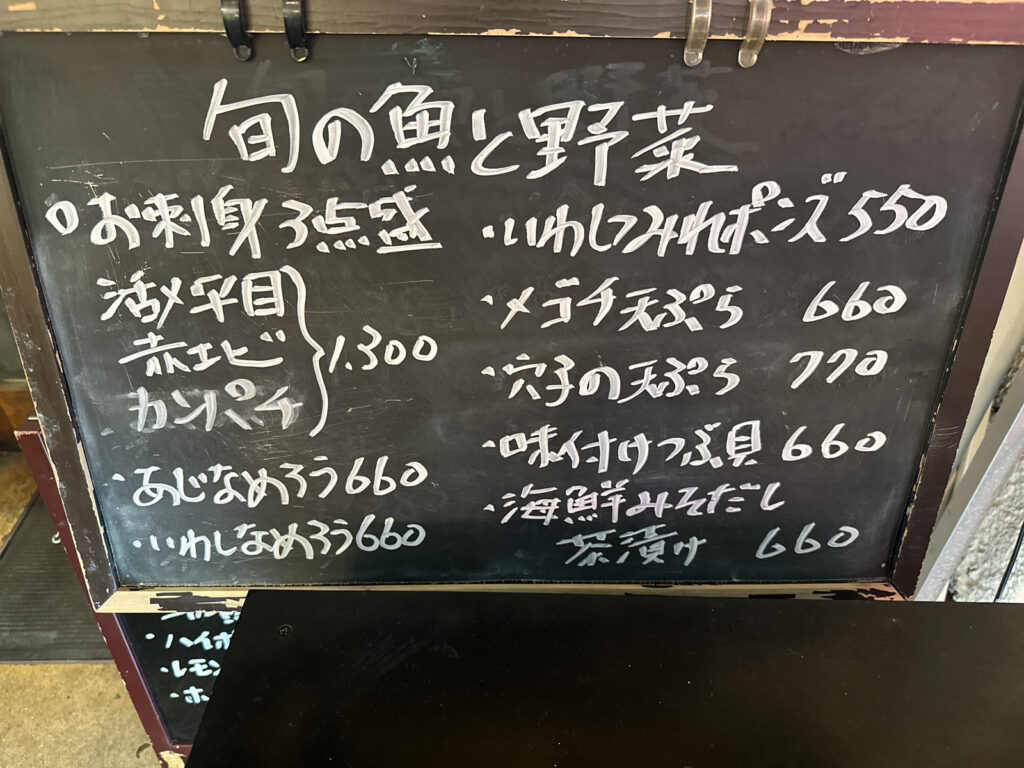 旬の魚と野菜
お刺身3点盛
活〆平目
赤エビ
カンパチ
1.300
・あじなめろう660
・いわしなめろう660
・いわしつみれポンズ550
・メゴチ天ぷら 660
・穴子の天ぷら 770
・味付けつぶ貝660
・海鮮みそだし
茶漬け 660
・ハイボ
・レモン
・ホ